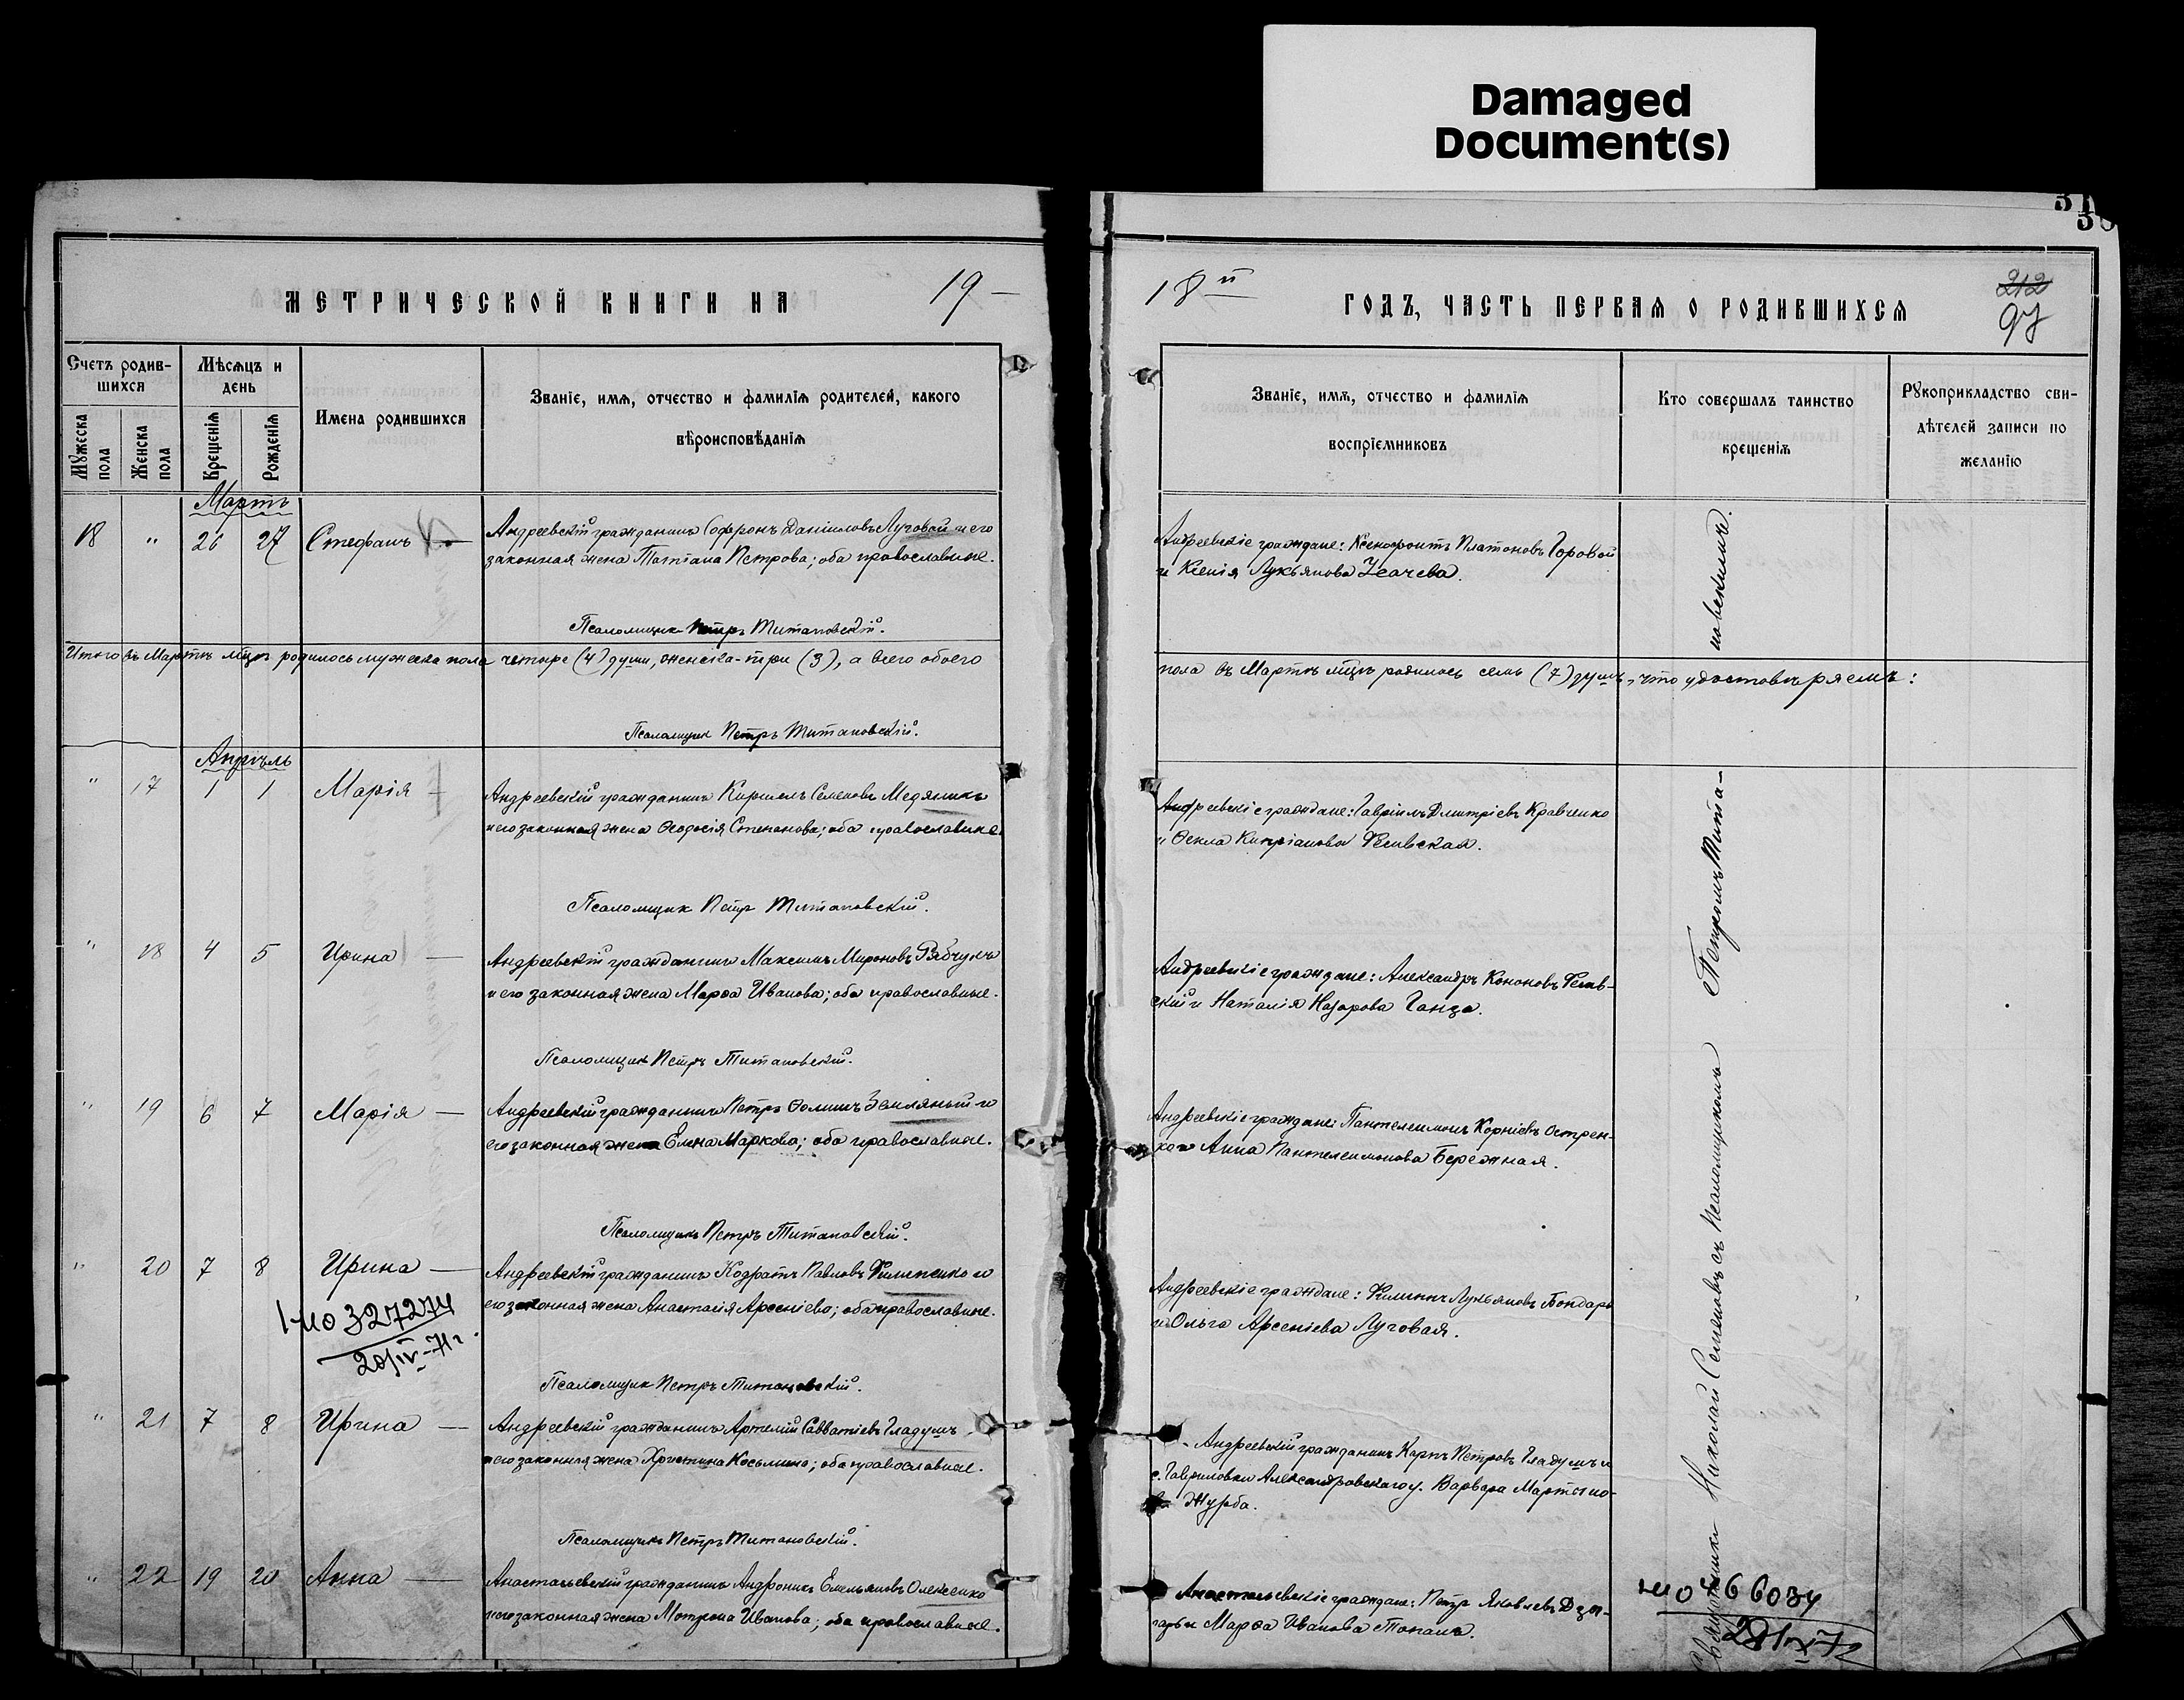 Damaged
Document(s)
МЕТРИЧЕСКОЙ КНИГИ НА 19 —
Счетъ родив-
шихся
Мѣсяцъ и
день
Имена родившихся
Званіе, имя, отчество и фамилія родителей, какого
вѣроисповѣданія
Мужеска
пола
Женска
пола
Крещенія
Рожденія
Мартъ
18 " 26 27 Стефанъ Андреевскій гражданинъ Софронъ Даніиловъ Луговой и его
законная жена Татіана Петрова; оба православные.
Псаломщик Петръ Титановскій.
Итого въ Мартѣ м‑цѣ родилось мужеска пола четыре (4) души, женска - три (3), а всего обоего
Псаломщик Петръ Титановскій.
Апрѣль
" 17 1 1 Марія Андреевскій гражданинъ Кириллъ Семеновъ Медяникъ
и его законная жена Ѳеодосія Степанова; оба православные.
Псаломщик Петръ Титановскій.
" 18 4 5 Ирина — Андреевскій гражданинъ Максимъ Мироновъ Рябчунъ
и его законная жена Марѳа Иванова; оба православные.
Псаломщикъ Петръ Титановскій.
" 19 6 7 Марія — Андреевскій гражданинъ Петръ Ѳоминъ Земляный и
его законная жена Елена Маркова; оба православные.
Псаломщикъ Петръ Титановскій.
" 20 7 8 Ирина — Андреевскій гражданинъ Кодратъ Павловъ Филипенко и
его законная жена Анастасія Арсеніева; оба православные.
327274
20/IV-71г.
Псаломщик Петръ Титановскій.
" 21 7 8 Ирина — Андреевскій гражданинъ Артемій Савватіевъ Гладушъ
и его законная жена Христина Косьмина; оба православные.
Псаломщикъ Петръ Титановскій.
" 22 19 20 Анна — Анастасьевскій гражданинъ Андроникъ Емельяновъ Олексенко
и его законная жена Мотрона Иванова; оба православные.
18й ГОДЪ, ЧАСТЬ ПЕРВАЯ О РОДИВШИХСЯ
212
97
Званіе, имя, отчество и фамилія
воспріемниковъ
Кто совершалъ таинство
крещенія
Рукоприкладство сви-
дѣтелей записи по
желанію
Андреевскіе граждане: Ксенофонтъ Платоновъ Горовой
и Ксенія Лукьянова
пола въ Мартѣ м‑цѣ родилось семь (7) душъ, что удостовѣряемъ:
Андреевскіе граждане: Гавріилъ Дмитріевъ Кравченко
и Ѳекла Кипріанова
Андреевскіе граждане: Александръ Кононовъ
скій и Наталія Назарова Ганза.
Андреевскіе граждане: Пантелеимонъ Корніевъ Остpен-
ко и Анна Пантелеимонова Бережная.
Андреевскіе граждане: Филиппъ Лукьяновъ Бондарь
и Ольга Арсеніева Луговая.
Андреевскій гражданинъ Карпъ Петровъ Гладушъ и
с. Гавриловки Александровскаго у. Варвара Мартыно-
ва Журба.
Анастасьевскіе граждане: Петръ Яковлевъ Дзю-
и Марѳа Иванова
Священники Николай Семеновъ съ Псаломщикомъ Петромъ Тита-
новскимъ.
466034